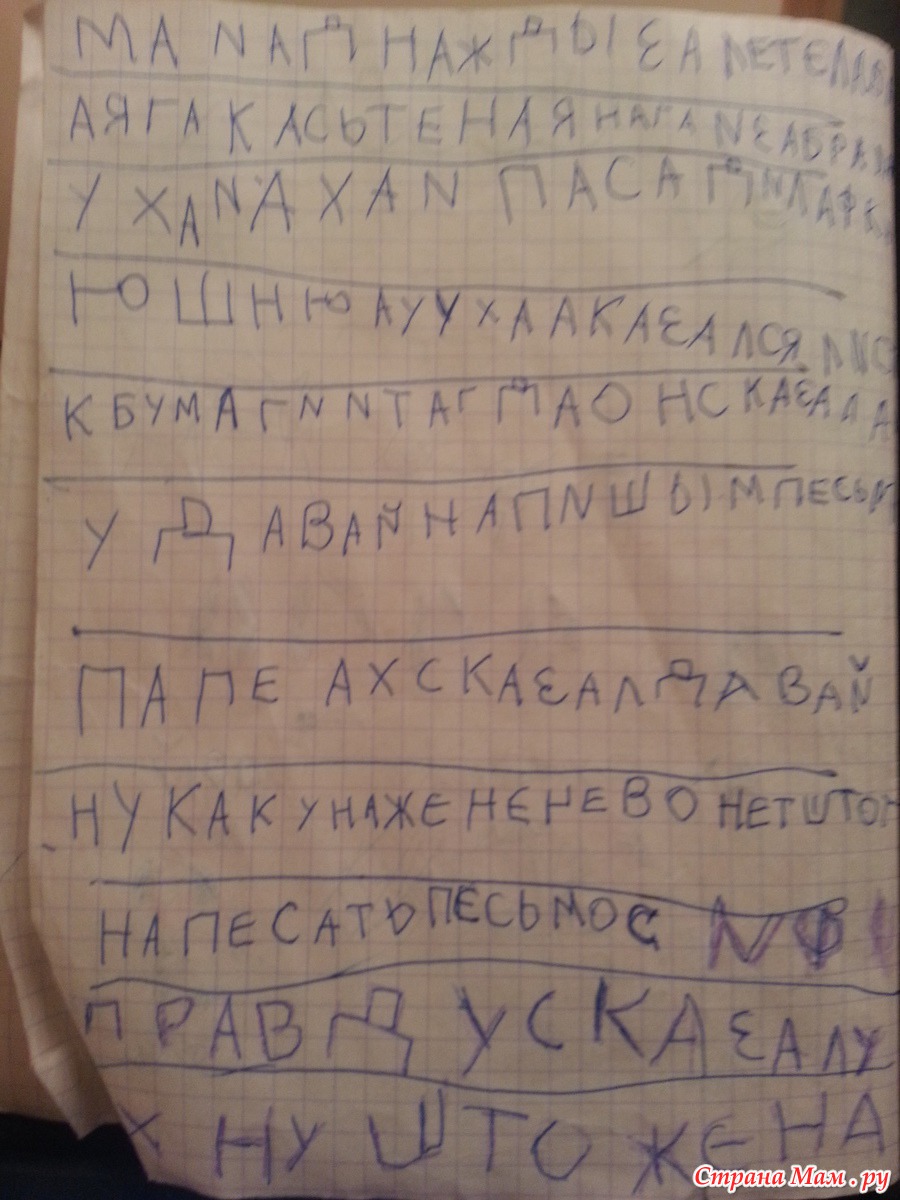 МА ИАДНАЖДЫ ЗА ЛЕТЕЛА
АЯГА КАСЬТЕНАЯ НАГА ИЗАБРА
У ХАИДХАИ ПАСАДИЛАФК
Ю ШНЮ АУ УХА АКАЗАЛСЯ ЛИС
К БУМАГИ ИТАГДА ОН СКАЗАЛА
У ДАВАЙ НАПИШЫМ ПЕСЬМ
ПАПЕ АХ СКАЗАЛ ДАВАЙ
НУ КАК У НАЖЕ НЕНЕВО НЕТ ШТО
НАПЕСАТЬ ПЕСЬМО С
ПРАВДУ СКАЗАЛ У
Х НУ ШТО ЖЕ НА
Страна Мам.ру